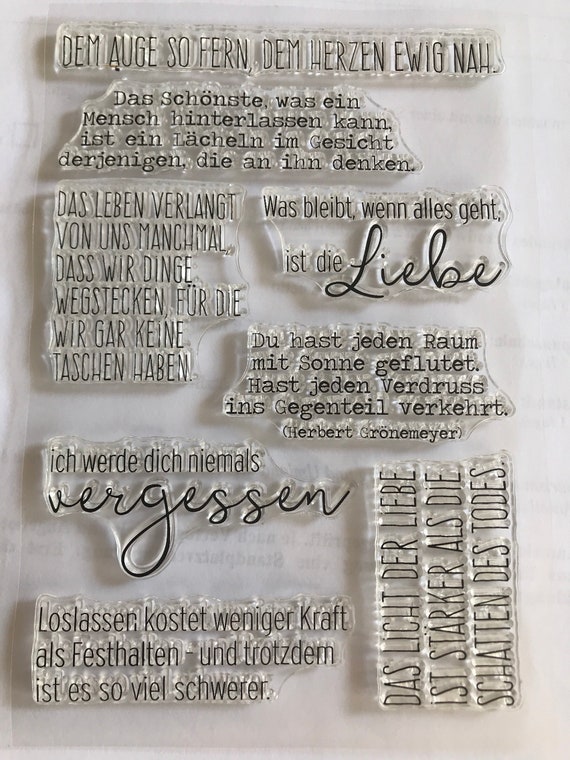 DEM AUGE SO FERN, DEM HERZEN EWIG NAH.
Das Schönste, was ein
Mensch hinterlassen kann,
ist ein Lächeln im Gesicht
derjenigen, die an ihn denken.
DAS LEBEN VERLANGT
VON UNS MANCHMAL,
DASS WIR DINGE
WEGSTECKEN, FÜR DIE
WIR GAR KEINE
TASCHEN HABEN.
Was bleibt, wenn alles geht,
ist die Liebe
Du hast jeden Raum
mit Sonne geflutet.
Hast jeden Verdruss
ins Gegenteil verkehrt.
(Herbert Grönemeyer)
ich werde dich niemals
vergessen
DAS LICHT DER LIEBE
IST STÄRKER ALS DIE
SCHATTEN DES TODES
Loslassen kostet weniger Kraft
als Festhalten - und trotzdem
ist es so viel schwerer.